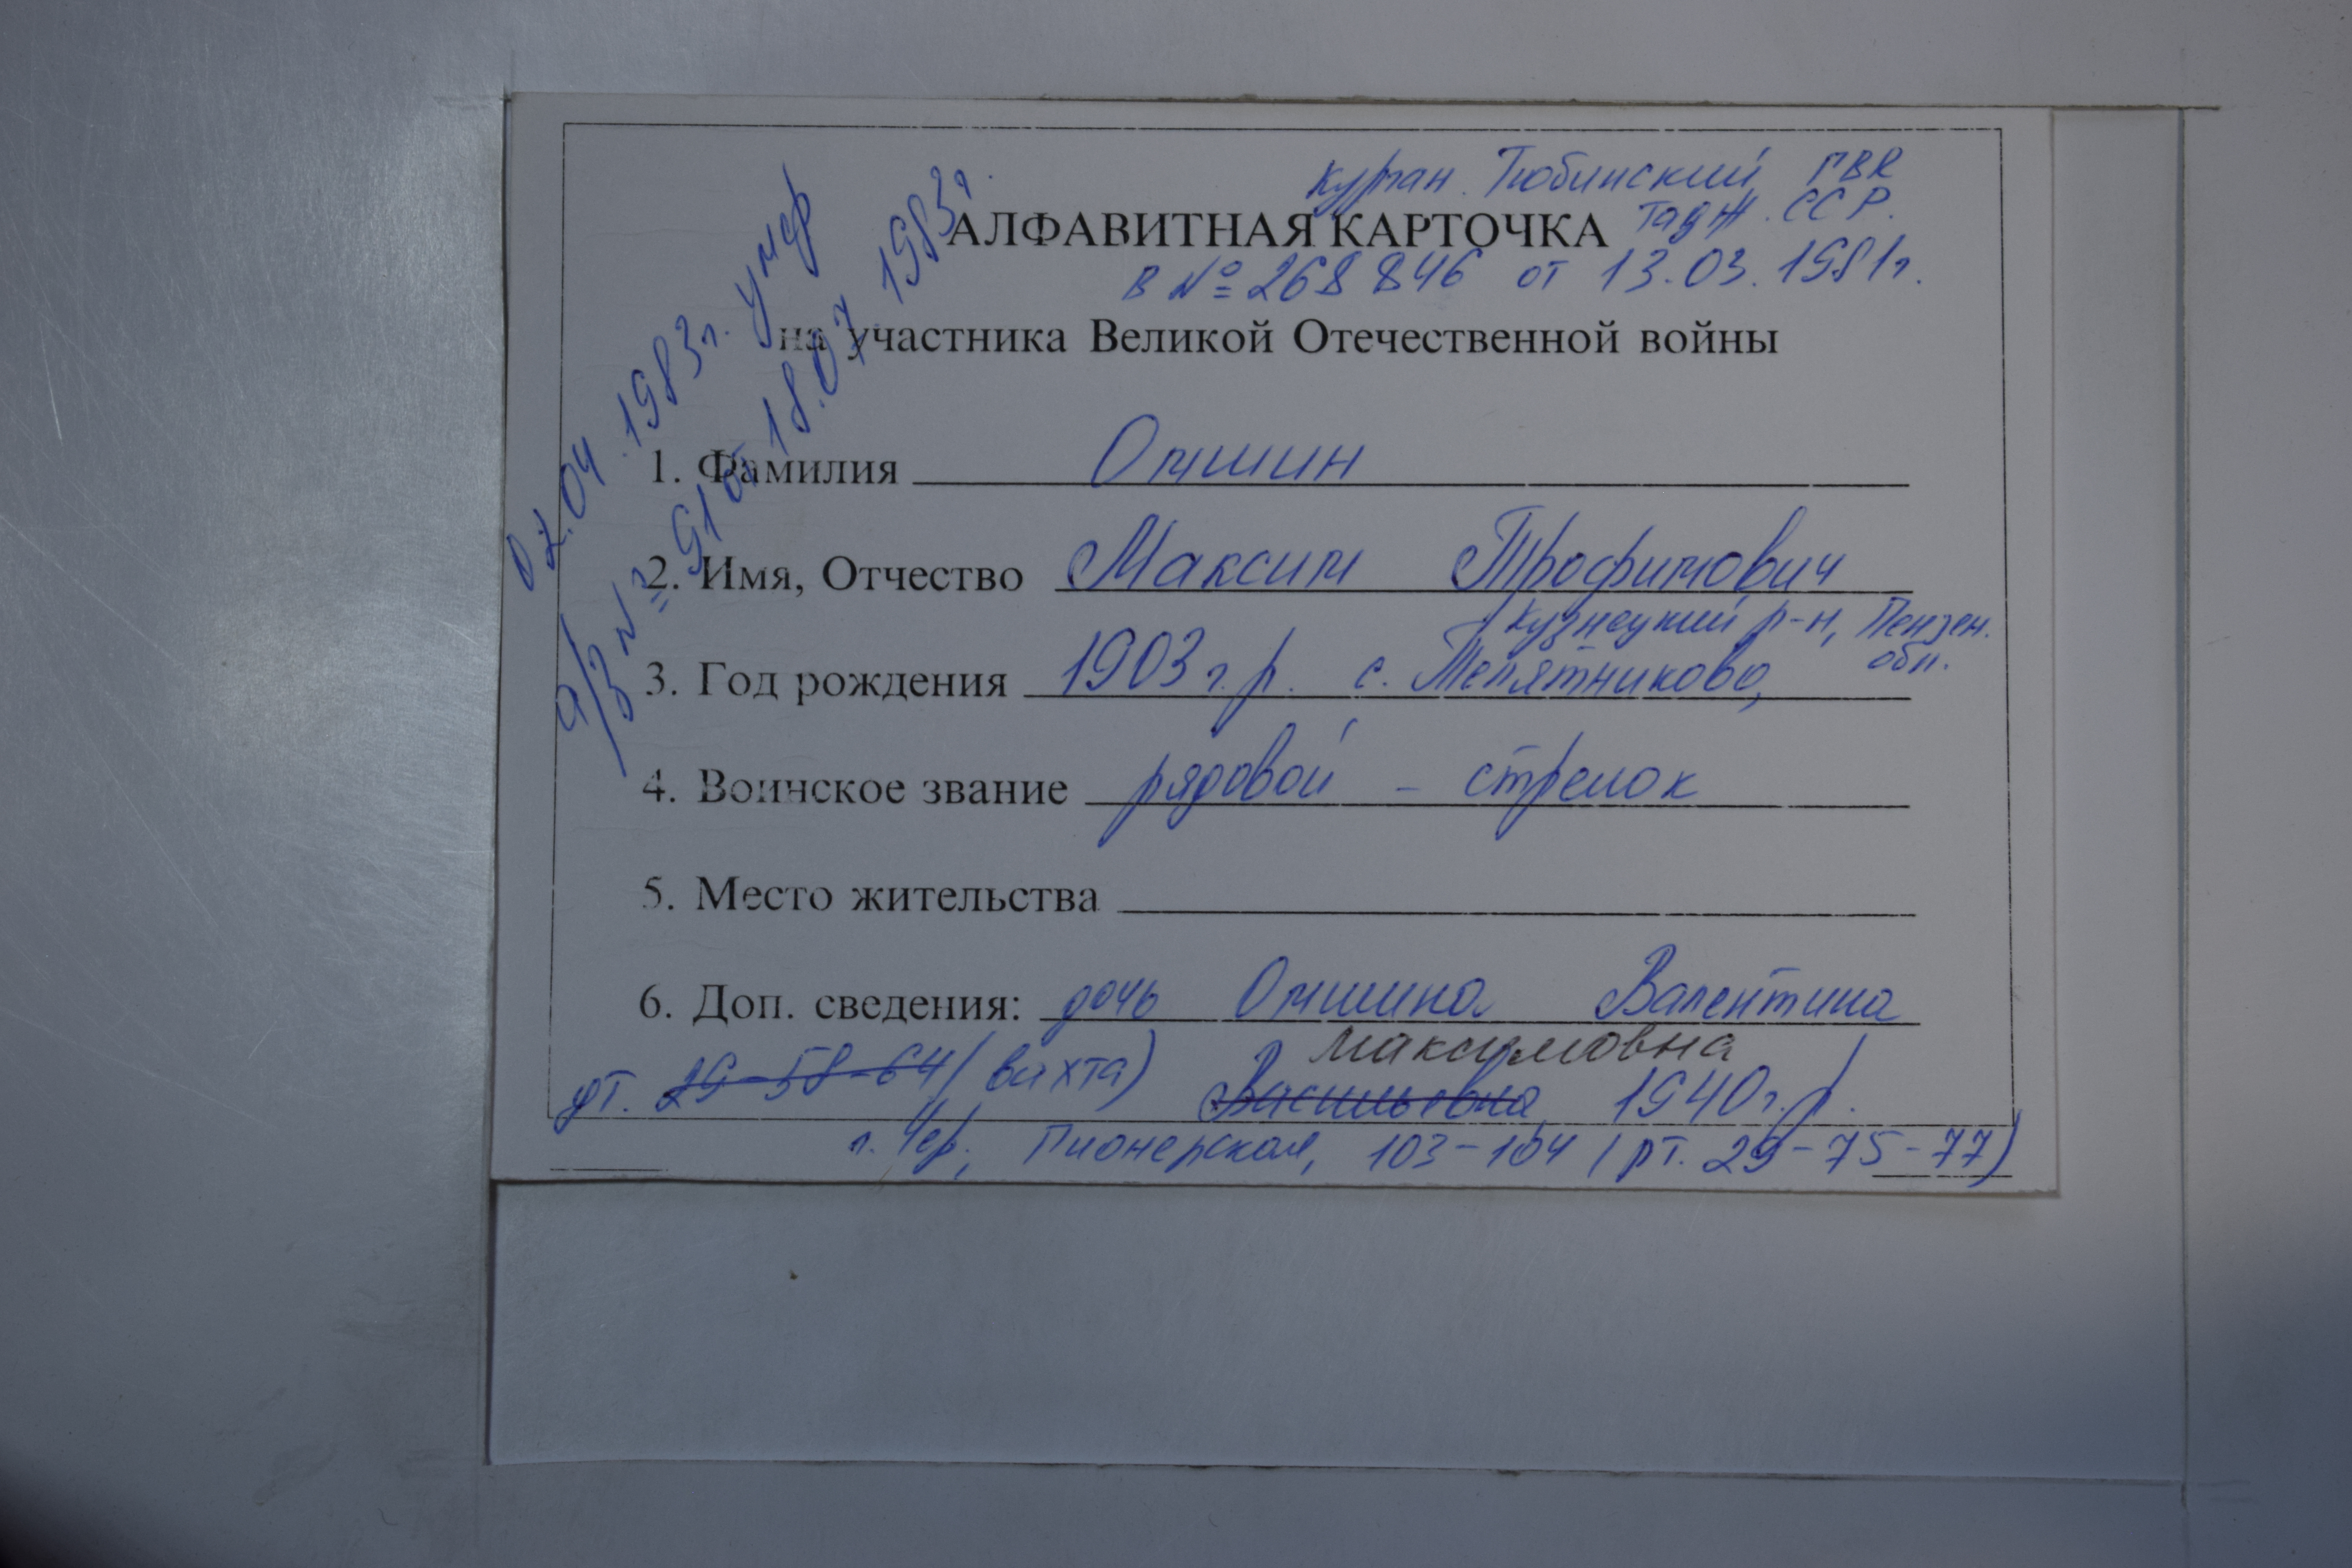 Курган. Тюбинский ГВК
Тадж. ССР.
АЛФАВИТНАЯ КАРТОЧКА
В № 268846 от 13.03.1981г.
на участника Великой Отечественной войны
07.04.1983г. умер
а/з № 91 от 18.07 1983г.
1. Фамилия Омшин
2. Имя, Отчество Максим Трофимович
Кузнецкий р-н, Пензен.
обл.
3. Год рождения 1903 г.р. с.
4. Воинское звание рядовой - стрелок
5. Место жительства
6. Доп. сведения: дочь Омшина Валентина
Максимовна
дт. 29-58-64 (вахта) Васильевна 1940г.р.
г. Чер., Пионерская, 103-104 (рт. 29-75-77)